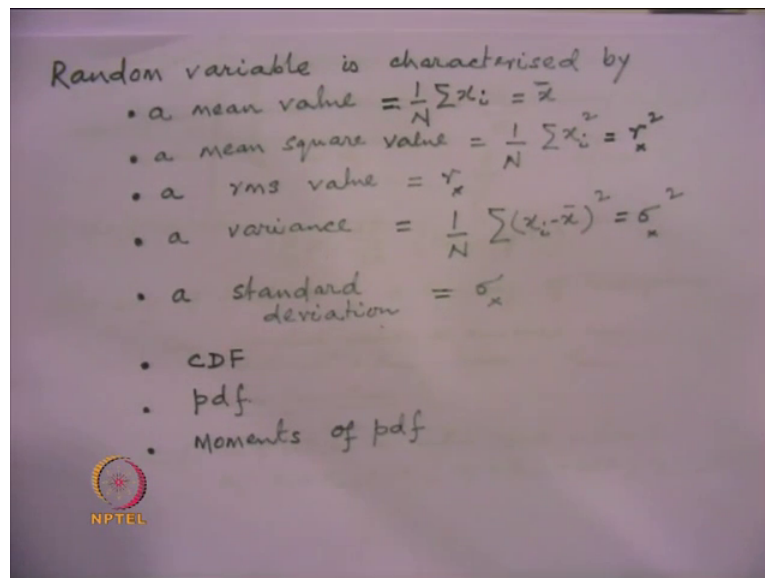 Random variable is characterised by
• a mean value = 1/N Σxᵢ = x̄
• a mean square value = 1/N Σxᵢ² = rₓ²
• a rms value = rₓ
• a variance = 1/N Σ(xᵢ-x̄)² = σₓ²
• a standard deviation = σₓ
• CDF
• pdf
• Moments of pdf
NPTEL